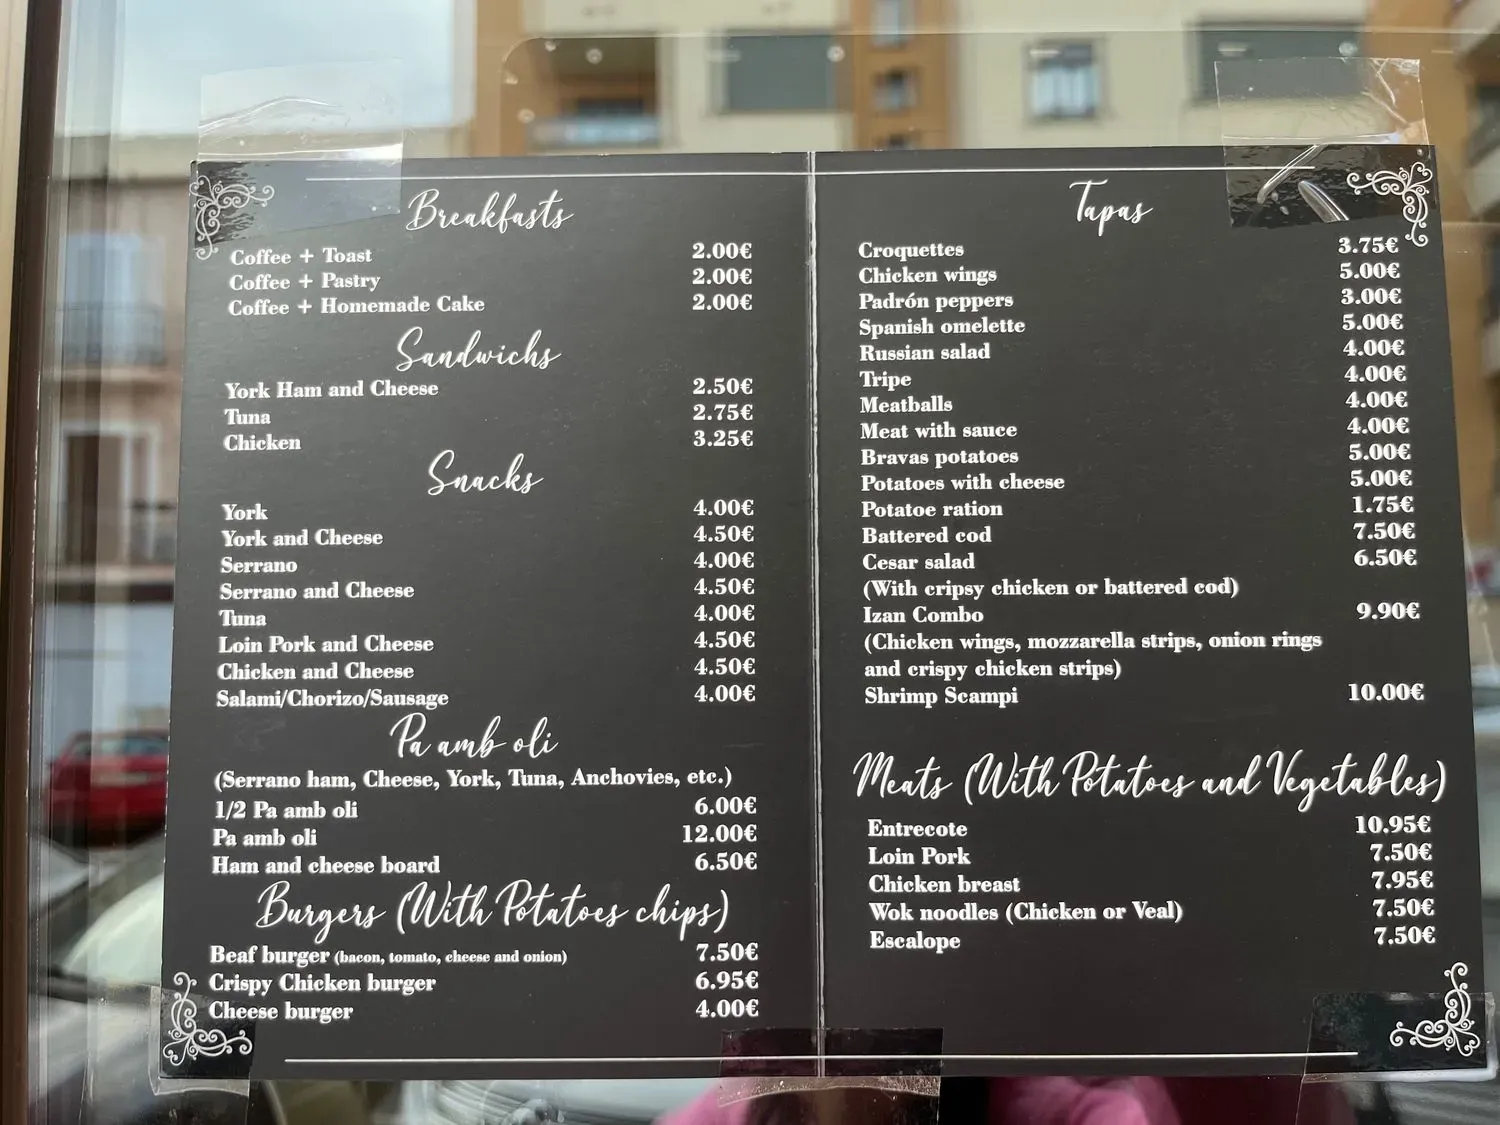 Breakfasts
Coffee + Toast 2.00€
Coffee + Pastry 2.00€
Coffee + Homemade Cake 2.00€
Sandwichs
York Ham and Cheese 2.50€
Tuna 2.75€
Chicken 3.25€
Snacks
York 4.00€
York and Cheese 4.50€
Serrano 4.00€
Serrano and Cheese 4.50€
Tuna 4.00€
Loin Pork and Cheese 4.50€
Chicken and Cheese 4.50€
Salami/Chorizo/Sausage 4.00€
Pa amb oli
(Serrano ham, Cheese, York, Tuna, Anchovies, etc.)
1/2 Pa amb oli 6.00€
Pa amb oli 12.00€
Ham and cheese board 6.50€
Burgers (With Potatoes chips)
Beaf burger (bacon, tomato, cheese and onion) 7.50€
Crispy Chicken burger 6.95€
Cheese burger 4.00€
Tapas
Croquettes 3.75€
Chicken wings 5.00€
Padrón peppers 3.00€
Spanish omelette 5.00€
Russian salad 4.00€
Tripe 4.00€
Meatballs 4.00€
Meat with sauce 4.00€
Bravas potatoes 5.00€
Potatoes with cheese 5.00€
Potatoe ration 1.75€
Battered cod 7.50€
Cesar salad 6.50€
(With cripsy chicken or battered cod)
Izan Combo 9.90€
(Chicken wings, mozzarella strips, onion rings
and crispy chicken strips)
Shrimp Scampi 10.00€
Meats (With Potatoes and Vegetables)
Entrecote 10.95€
Loin Pork 7.50€
Chicken breast 7.95€
Wok noodles (Chicken or Veal) 7.50€
Escalope 7.50€